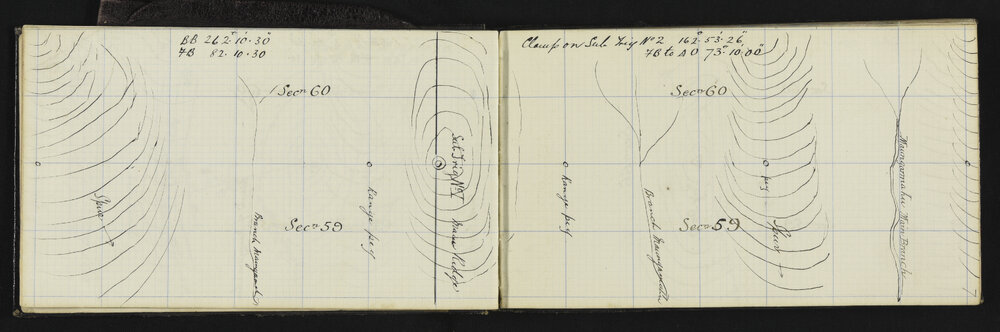 BB 262°·10'·30"
FB 82·10·30
Secn 60
Sub Trig No 1
Spur
Range peg
Main Ridge
Secn 59
Branch
Clamp on Sub Trig No 2 162°·53'·26"
FB to A O 73°·10'·00"
Secn 60
Range peg
peg
Secn 59
Spur
Branch
Main Branch
7